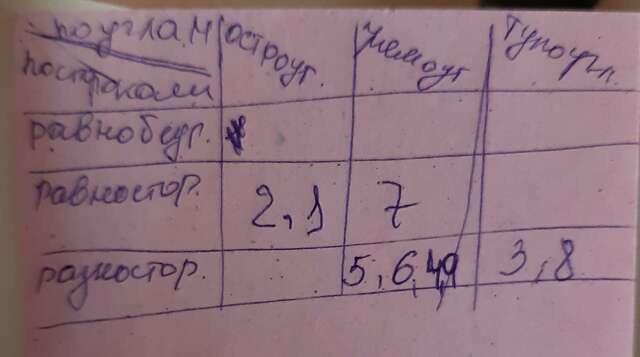 по углам остроуг. прямоуг тупоугл.
по сторонам
равнобедр.
равностор. 2, 1 7
разностор. 5, 6, 4, 9 3, 8